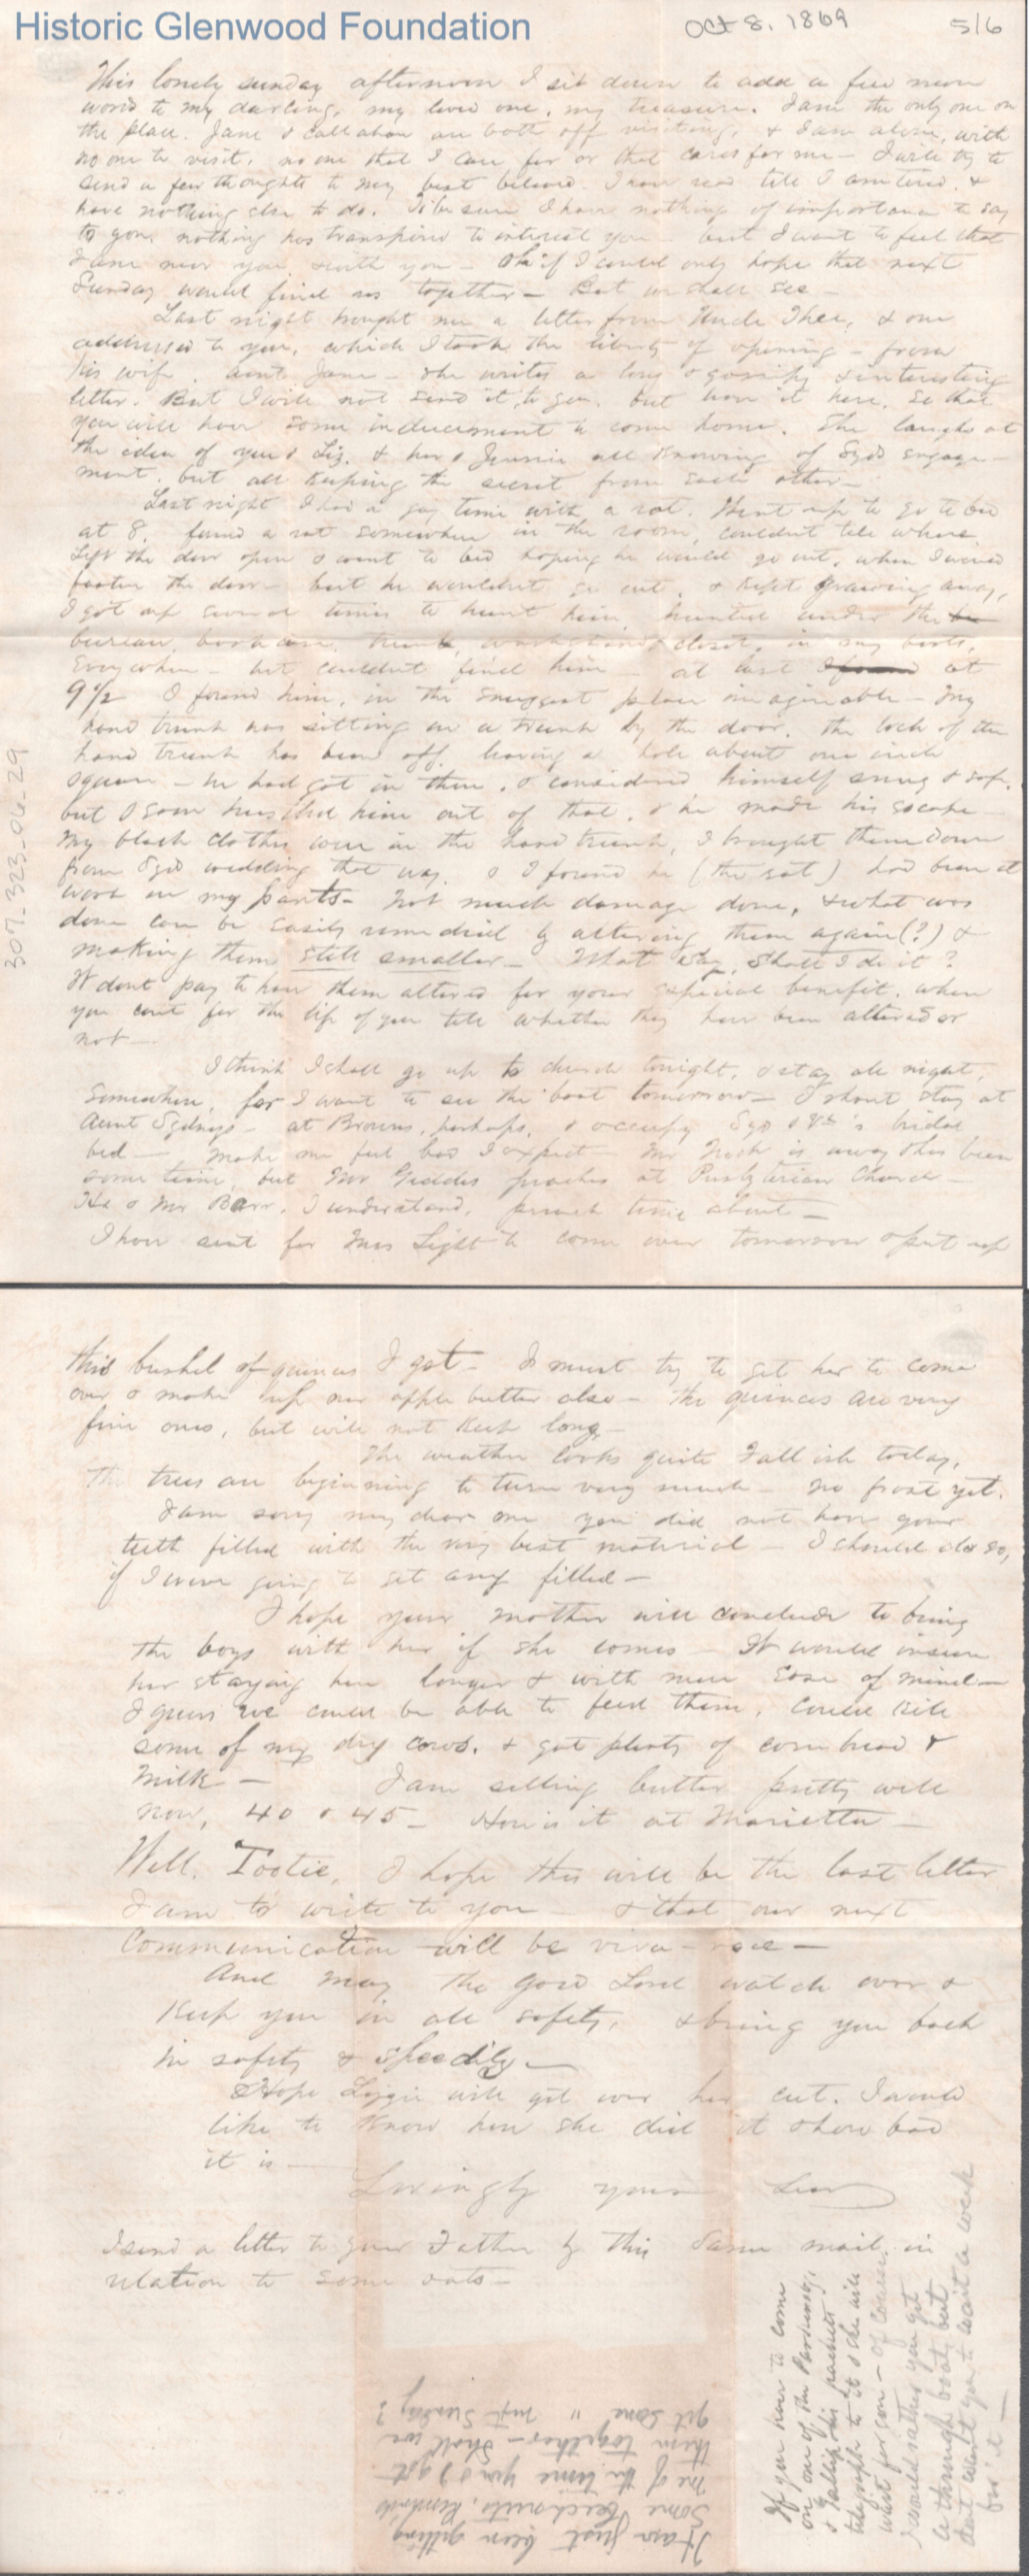 Historic Glenwood Foundation
Oct 8, 1869
5/6
This lonely sunday afternoon I sit down to add a few more
words to my darling, my loved one, my treasure. I am the only one on
the place. Jane & Callahan are both off visiting, & I am alone, with
no one to visit, no one that I care for or that cares for me — I will try to
send a few thoughts to my best beloved. I have read till I am tired, &
have nothing else to do. To be sure I have nothing of importance to say
to you, nothing has transpired to interest you — but I want to feel that
I am near you, & with you — Oh if I could only hope that next
Sunday would find us together — But we shall see —
Last night brought me a letter from Uncle Thee, & one
addressed to you, which I took the liberty of opening — from
his wife, Aunt Jane — She writes a long & gossipy & interesting
letter. But I will not send it to you, but have it here, so that
you will have some inducement to come home. She laughs at
the idea of you & Liz, & her & Jennie all knowing of Syd's engage-
ment, but all keeping the secret from each other —
Last night I had a gay time with a rat. Went up to go to bed
at 8, found a rat somewhere in the room, couldn't tell where,
left the door open & went to bed hoping he would go out, when I would
fasten the door — but he wouldn't go out, & kept gnawing away,
I got up several times to hunt him, hunted under the bu
bureau, bookcase, trunk, washstand, closet, in my boots,
everywhere — but couldn't find him — at last I found at
9 1/2 I found him, in the snuggest place imaginable — My
hand trunk was sitting on a trunk by the door. the lock of the
hand trunk has been off, leaving a hole about one inch
square — he had got in there, & considered himself snug & safe,
but I soon him out of that, & he made his escape —
My black clothes were in the hand trunk, I brought them down
from Syd's wedding that way, & I found he (the rat) had been at
work on my pants — Not much damage done, & what was
done can be easily remedied by altering them again(?) &
making them still smaller — What say, shall I do it?
It dont pay to have them altered for your especial benefit, when
you cant for the life of you tell whether they have been altered or
not —
I think I shall go up to church tonight, & stay all night,
Somewhere, for I want to see the boat tomorrow — I shant stay at
Aunt Sydneys — at Browns, perhaps, & occupy Syd & 's bridal
bed — Make me feel bad I expect — Mr is away & has been
some time, but Mr Geddes preaches at Presbyterian Church —
He & Mr Barr, I understand, preach time about —
I have sent for Mrs Light to come over tomorrow & put up
307_323_06_29
this bushel of quinces I got — I must try to get her to come
over & make up our apple butter also — the quinces are very
fine ones, but will not keep long —
The weather looks quite Fall ish today,
The trees are beginning to turn very much — no frost yet.
I am sorry my dear one you did not have your
teeth filled with the very best material — I should do so,
if I were going to get any filled —
I hope your mother will conclude to bring
the boys with her if she comes — It would insure
her staying here longer & with more ease of mind —
I guess we could be able to feed them, Could kill
some of my dry cows, & got plenty of corn bread &
Milk — I am selling butter pretty well
now, 40 & 45 — How is it at Marietta —
Well, Tootie, I hope this will be the last letter
I am to write to you — & that our next
Communication will be viva-voce —
And may the good Lord watch over &
keep you in all safety, & bring you back
in safety & speedily —
Hope Lizzie will get over her cut. I would
like to know how she did it & how bad
it is —
Lovingly yours Lew
I send a letter to your Father by this same mail, in
relation to some oats —
If you have to come
on one of the Parkersbg.
& Gallip'lis packets
telegraph to it & she will
wait for you — of course
I would rather you get
a through boat, but
dont want you to wait a week
for it —
Have just been getting
Some Beechnuts, Reminds
me of the time you & I got
them together — Shall we
get some " next Sunday?